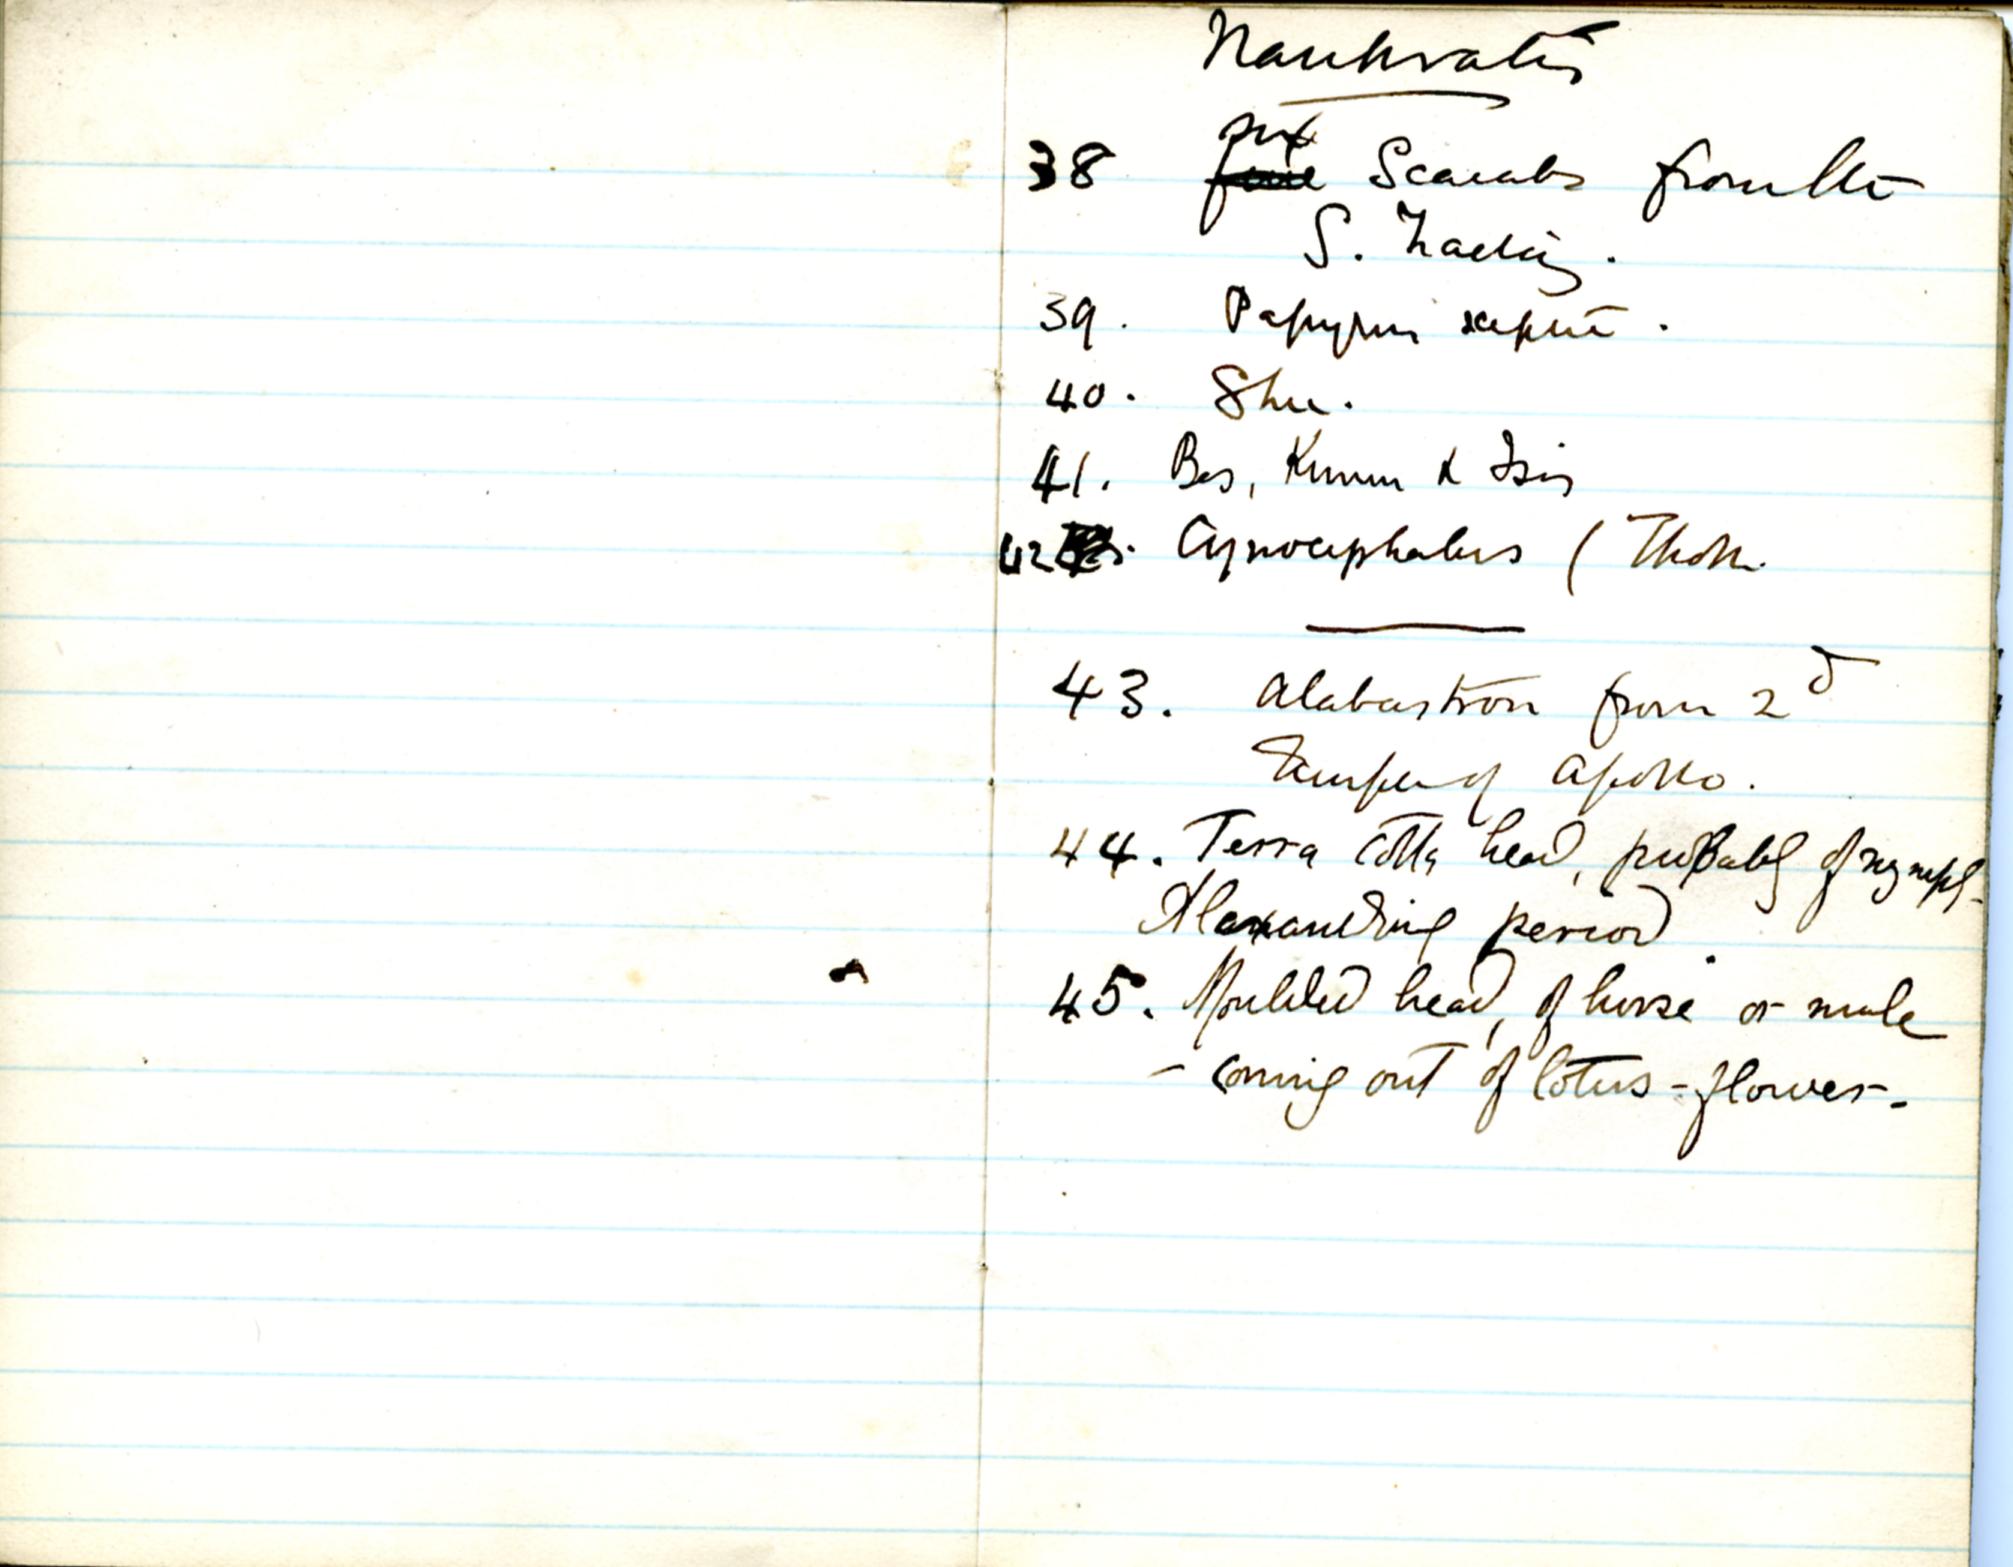 Naukratis
six
38 five Scarabs from the
S. Factory.
39. Papyrus sceptre.
40. Shu.
41. Bes, Knum & Isis
42. Cynocephalus (Thoth.
43. Alabastron from 2d
Temple of Apollo.
44. Terra cotta head, probably of nymph -
Alexandrine period.
45. Moulded head, of horse or mule
- coming out of lotus-flower -